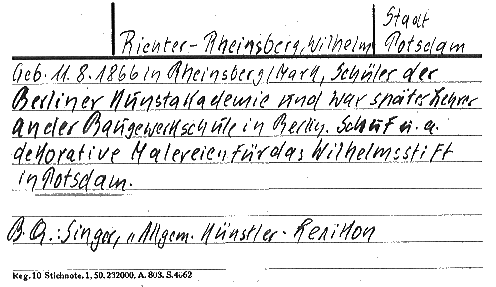 Richter-Rheinsberg, Wilhelm
Stadt
Potsdam
Geb. 11.8.1866 in Rheinsberg/Mark, Schüler der
Berliner Kunstakademie und war später Lehrer
an der Baugewerkschule in Berlin. Schuf u. a.
dekorative Malereien für das Wilhelmsstift
in Potsdam.
B.Q.: Singer, "Allgem. Künstler-Lexikon
Reg. 10 Stichnote. 1, 50. 232000, A. 803. S. 4662